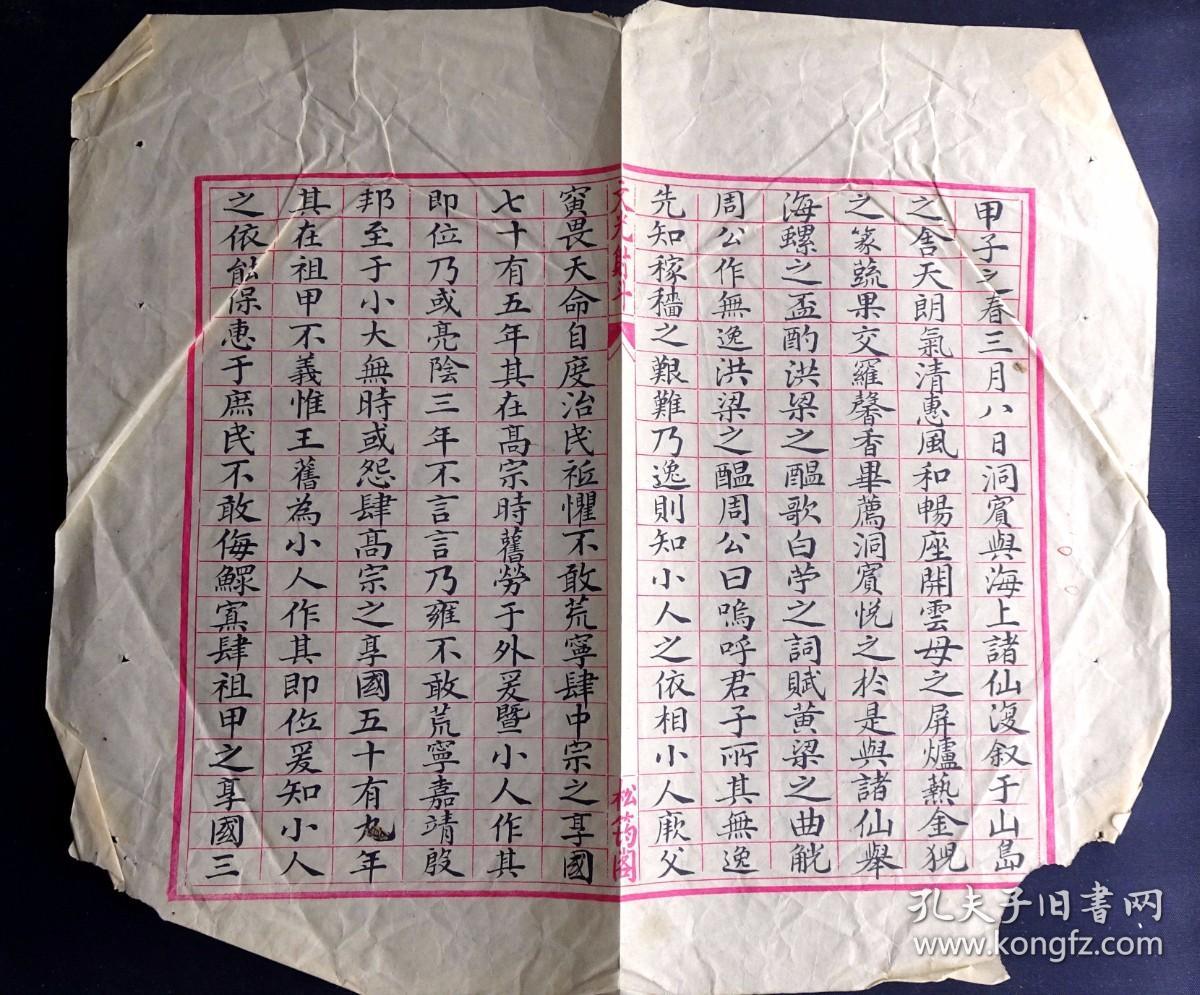 甲子之春三月八日洞賓與海上諸仙復叙于山島
之舍天朗氣清惠風和暢座開雲母之屏爐熱金猊
之篆蔬果交羅馨香畢薦洞賓悅之於是與諸仙舉
海螺之盃酌洪梁之醖歌白苧之詞賦黄梁之曲觥
周公作無逸洪梁之醖周公曰嗚呼君子所其無逸
先知稼穡之艱難乃逸則知小人之依相小人厥父
文光射斗
松筠閣
寅畏天命自度治民祗懼不敢荒寧肆中宗之享國
七十有五年其在高宗時舊勞于外爰暨小人作其
即位乃或亮陰三年不言言乃雍不敢荒寧嘉靖殷
邦至于小大無時或怨肆高宗之享國五十有九年
其在祖甲不義惟王舊為小人作其即位爰知小人
之依能保惠于庶民不敢侮鰥寡肆祖甲之享國三
孔夫子旧书网
www.kongfz.com